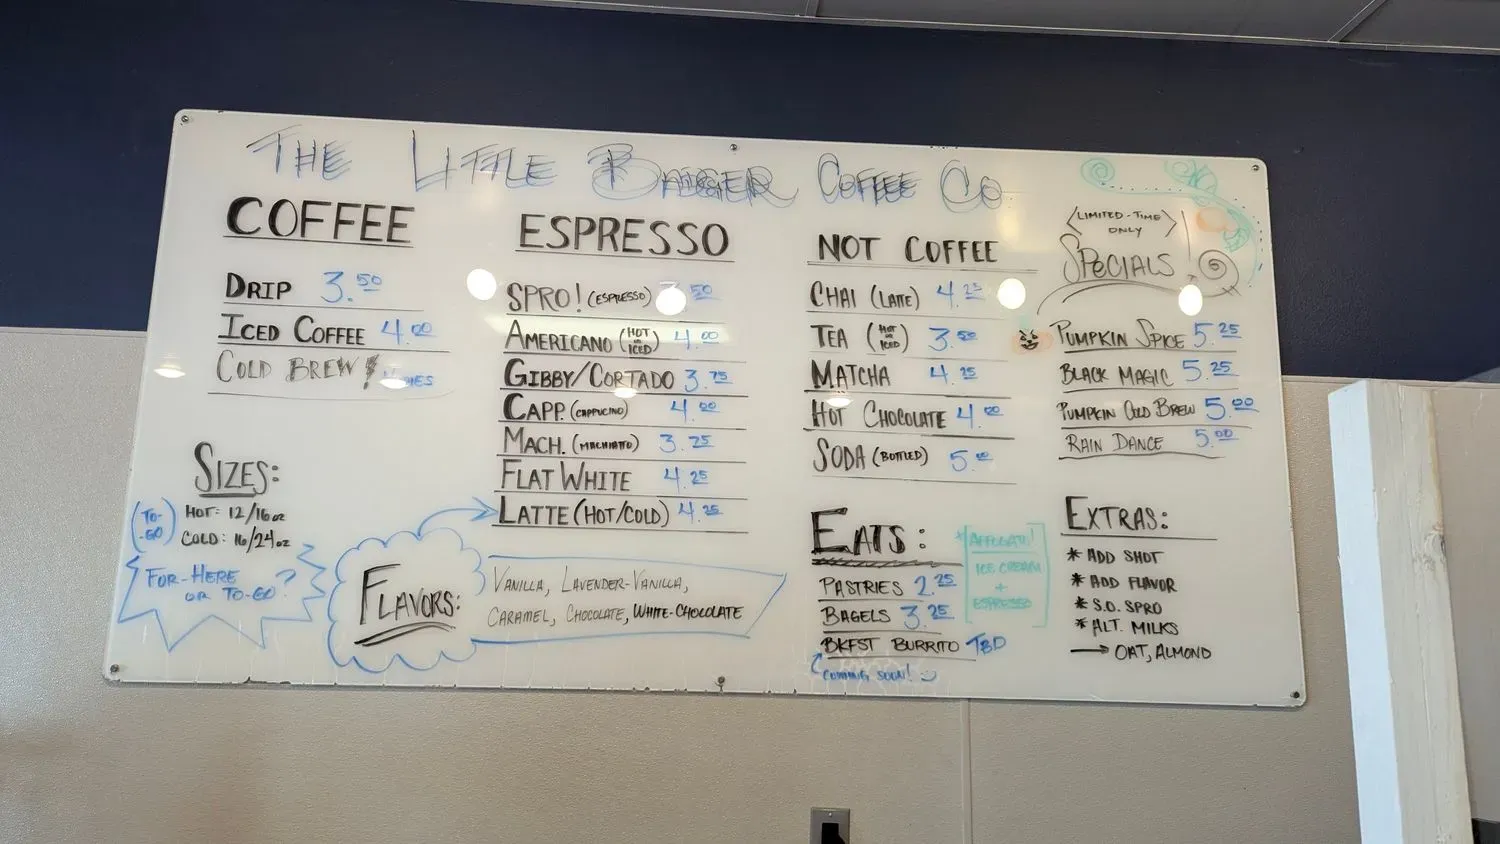 THE LITTLE BADGER COFFEE CO
COFFEE
DRIP 3.50
ICED COFFEE 4.00
COLD BREW!
SIZES:
(TO-GO) HOT: 12/16oz
COLD: 16/24oz
FOR-HERE
OR TO-GO?
ESPRESSO
SPRO! (ESPRESSO) .50
AMERICANO (HOT OR ICED) 4.00
GIBBY/CORTADO 3.75
CAPP. (CAPPUCINO) 4.00
MACH. (MACHIATTO) 3.25
FLAT WHITE 4.25
LATTE (HOT/COLD) 4.25
FLAVORS:
VANILLA, LAVENDER-VANILLA,
CARAMEL, CHOCOLATE, WHITE-CHOCOLATE
NOT COFFEE
CHAI (LATTE) 4.25
TEA (HOT OR ICED) 3.50
MATCHA 4.25
HOT CHOCOLATE 4.00
SODA (BOTTLED) 5.00
EATS:
PASTRIES 2.25
BAGELS 3.25
BKFST BURRITO TBD
COMING SOON!
* AFFOGATO!
ICE CREAM
+
ESPRESSO
<LIMITED-TIME
ONLY>
SPECIALS!
PUMPKIN SPICE 5.25
BLACK MAGIC 5.25
PUMPKIN COLD BREW 5.00
RAIN DANCE 5.00
EXTRAS:
* ADD SHOT
* ADD FLAVOR
* S.O. SPRO
* ALT. MILKS
→ OAT, ALMOND